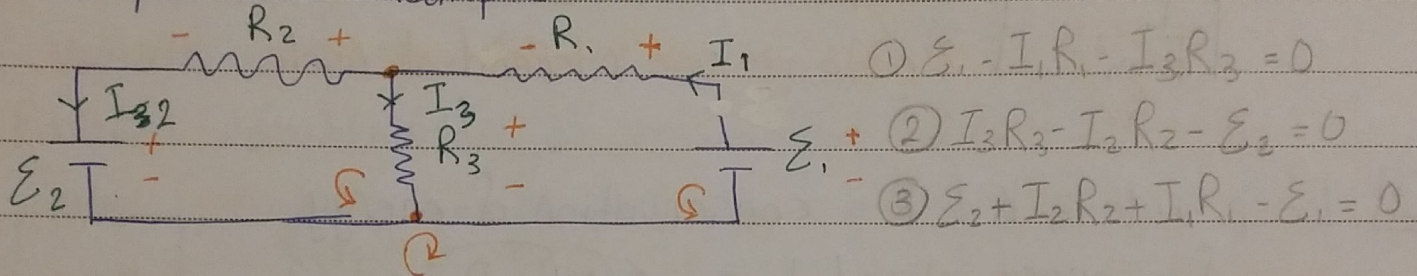 - R2 + - R1 + I1
I2 I3
R3
+ -
+ -
ε2
ε1 + -
① ε1 - I1R1 - I3R3 = 0
② I3R3 - I2R2 - ε2 = 0
③ ε2 + I2R2 + I1R1 - ε1 = 0